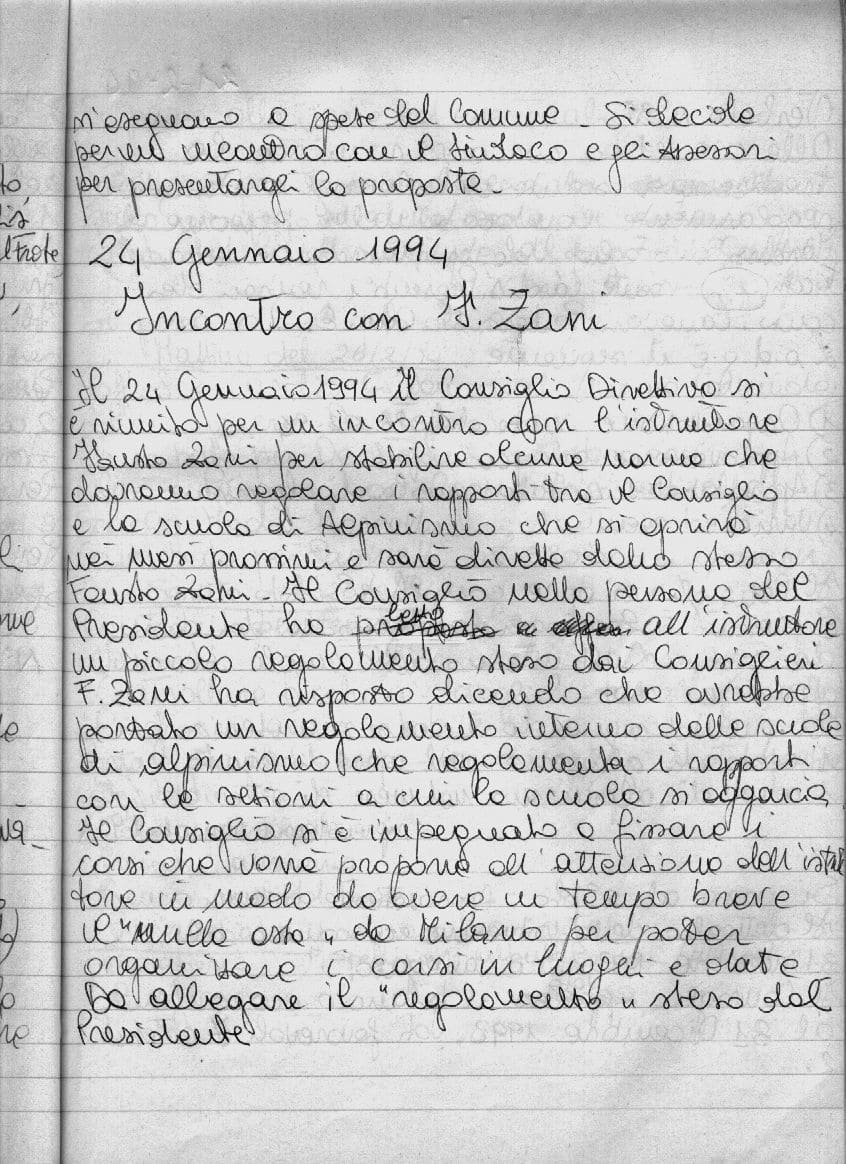 s'eseguano a spese del Comune - Si decide
per un incontro con il Sindaco e gli Assessori
per presentargli la proposta.
24 Gennaio 1994
Incontro con F. Zani
Il 24 Gennaio 1994 il Consiglio Direttivo si
è riunito per un incontro con l'istruttore
Fausto Zani per stabilire alcune norme che
dovranno regolare i rapporti tra il Consiglio
e la scuola di Alpinismo che si aprirà
nei mesi prossimi e sarà diretta dallo stesso
Fausto Zani - Il Consiglio nella persona del
Presidente ha letto all'istruttore
un piccolo regolamento steso dai Consiglieri
F. Zani ha risposto dicendo che avrebbe
portato un regolamento interno delle scuole
di alpinismo che regolamenta i rapporti
con le sezioni a cui la scuola si aggancia
Il Consiglio si è impegnato a fissare i
corsi che vorrà proporre all'attenzione dell'istrut
tore in modo da avere in tempo breve
il "nulla osta" da Milano per poter
organizzare i corsi in luoghi e date
Da allegare il "regolamento" steso dal
Presidente